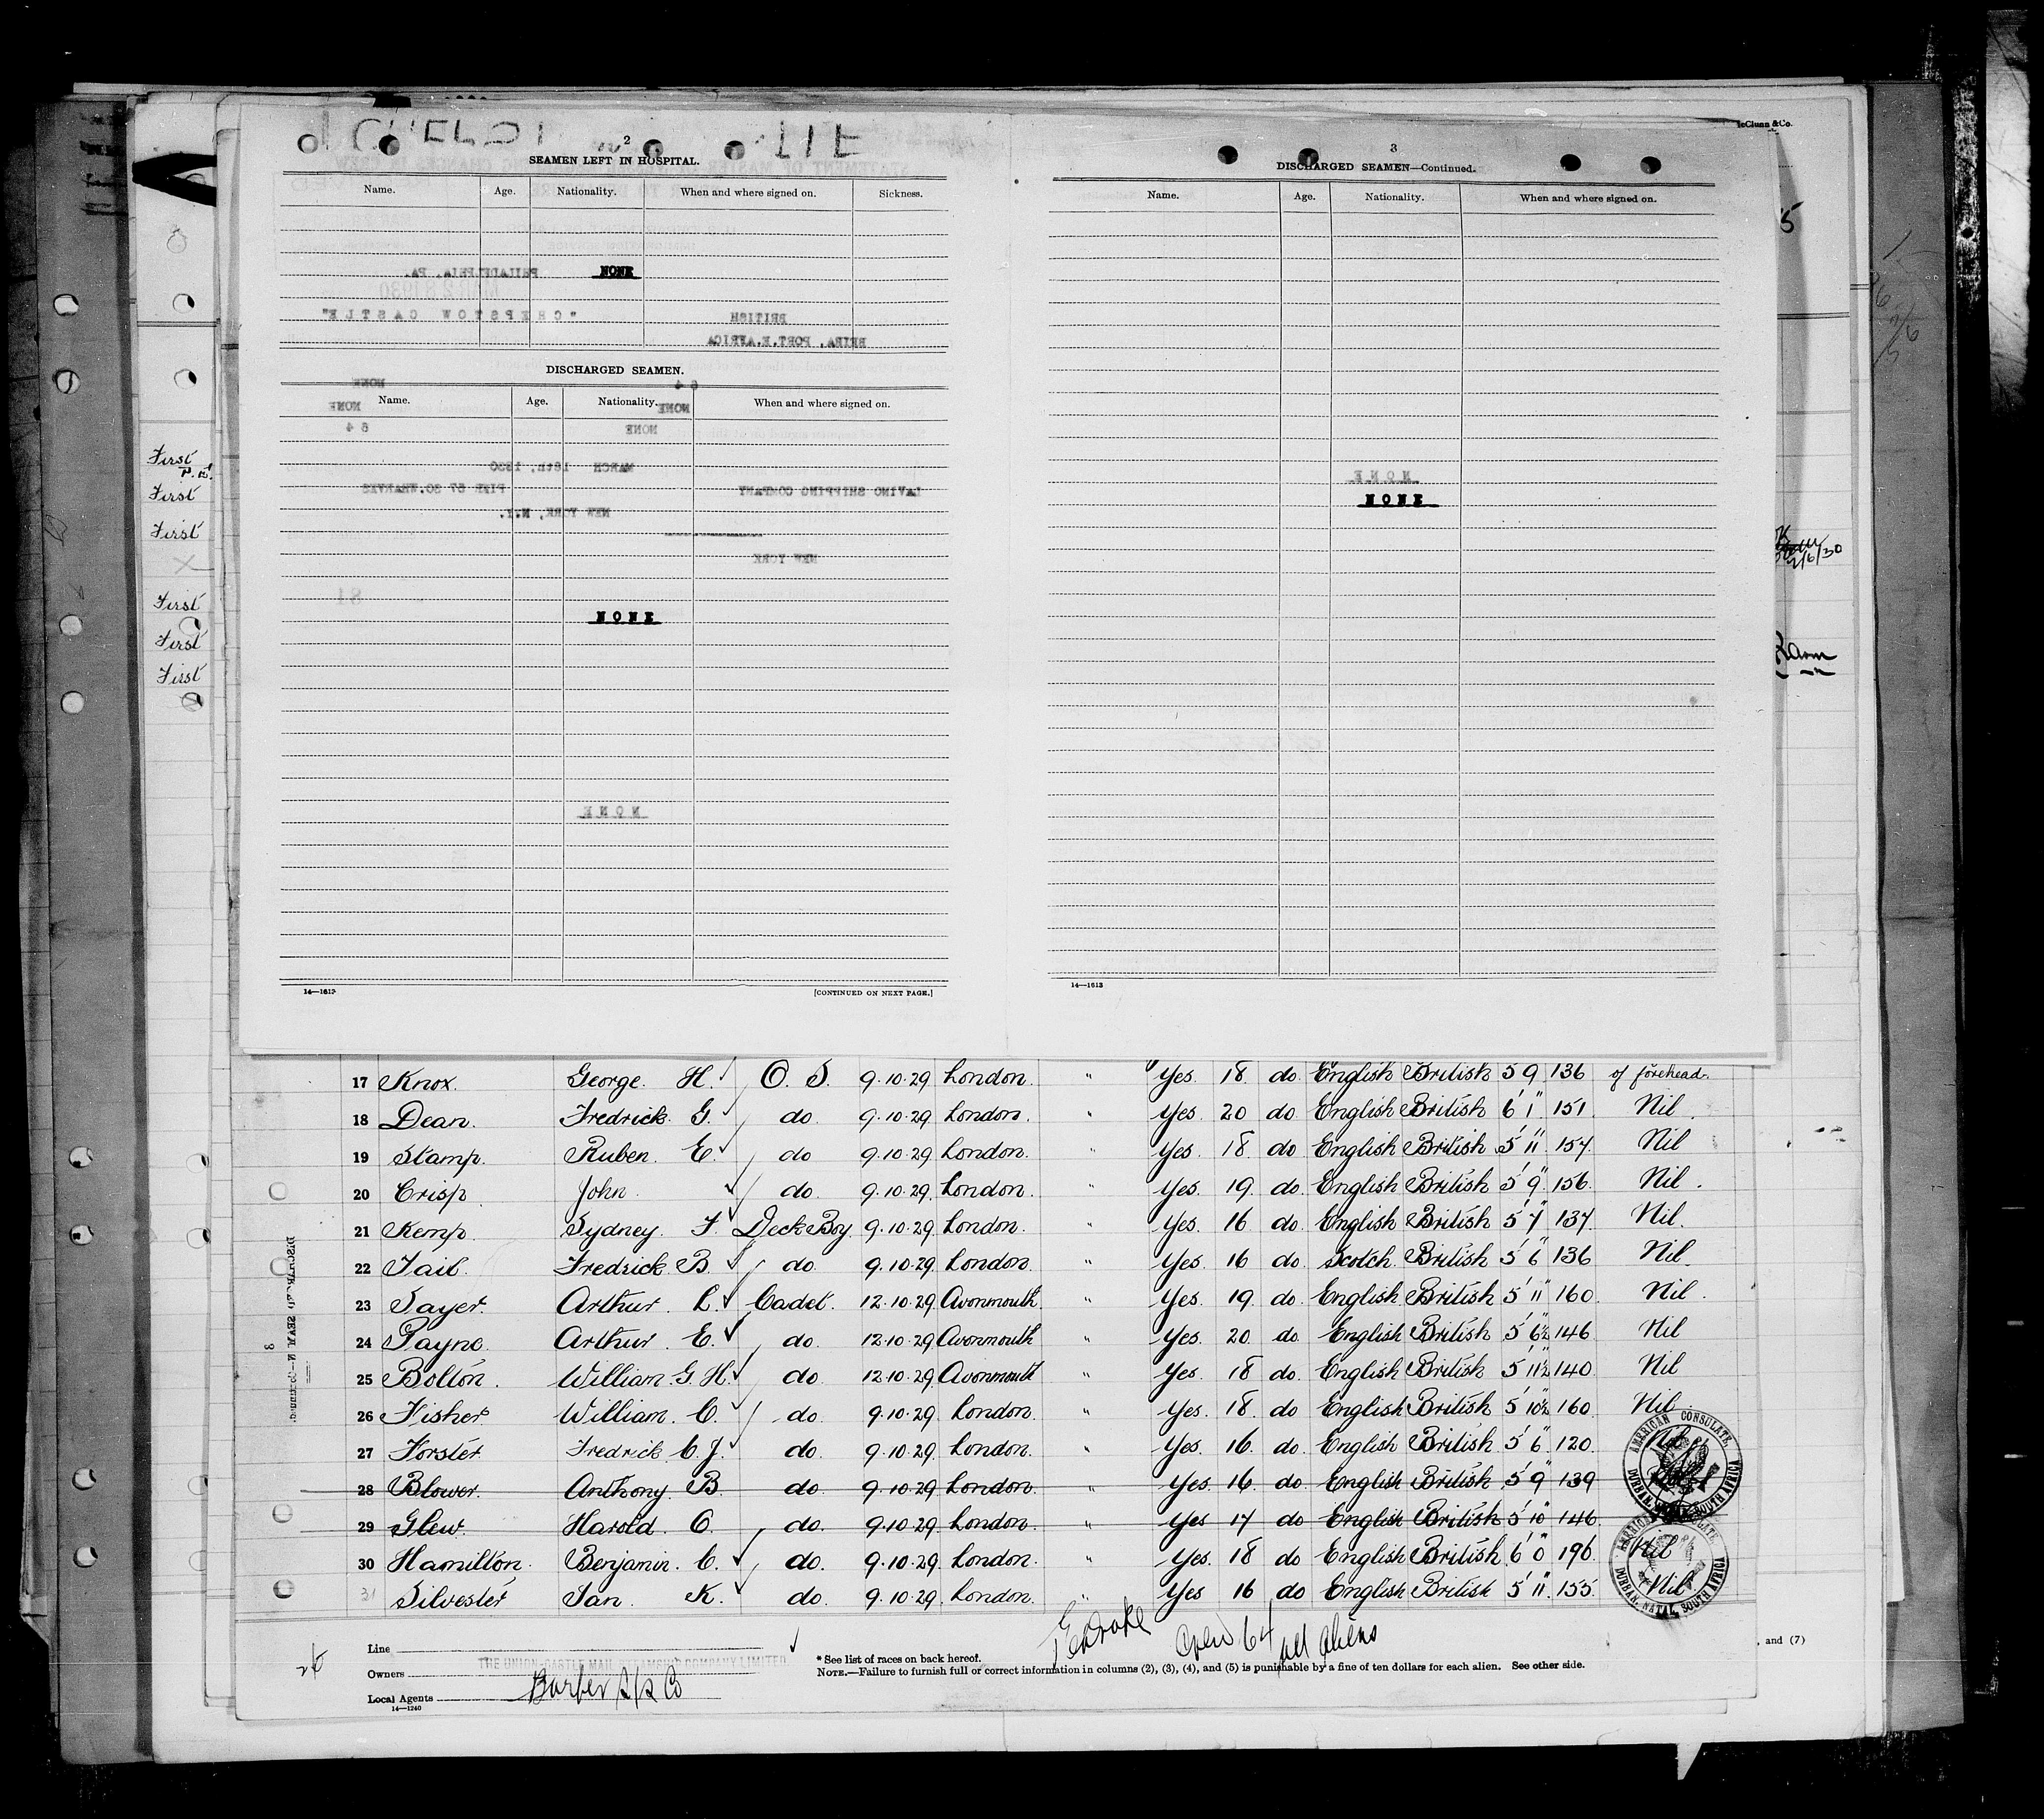 2
SEAMEN LEFT IN HOSPITAL.
Name. Age. Nationality. When and where signed on. Sickness.
PHILADELPHIA, PA.
NONE
"CHEPSTOW CASTLE"
BRITISH
BEIRA, PORT.E.AFRICA
DISCHARGED SEAMEN.
64
NONE
Name. Age. Nationality. When and where signed on.
NONE
NONE
64
NONE
MARCH 18th, 1930
LAVINO SHIPPING COMPANY
PIER 57 SO.WHARVES
NEW YORK, N.Y.
NEW YORK
84
NONE
NONE
14—1613
[CONTINUED ON NEXT PAGE.]
McClunn & Co.
3
DISCHARGED SEAMEN—Continued.
Name. Age. Nationality. When and where signed on.
NONE
NONE
14—1613
First
First
First
First
First
First
17 Knox. George. H. O. S. 9.10.29 London. " Yes. 18. do English British 5 9 136 of forehead.
18 Dean. Fredrick. G. do. 9.10.29 London. " Yes. 20 do English British 6' 1" 151. Nil.
19 Stamp. Ruben. E. do 9.10.29 London. " Yes. 18. do English British 5' 11" 157. Nil
20 Crisp. John. do. 9.10.29 London. " Yes. 19. do. English British 5' 9" 156. Nil.
21 Kemp. Sydney. F. Deck Boy. 9.10.29 London. " Yes. 16 do. English British 5' 7" 137. Nil.
22 Tait. Fredrick B. do. 9.10.29 London. " Yes. 16 do. Scotch British 5' 6" 136 Nil.
23 Sayer. Arthur. L. Cadet. 12.10.29 Avonmouth. " Yes. 19. do. English British 5' 11" 160. Nil.
24 Payne. Arthur. E. do. 12.10.29 Avonmouth " Yes. 20 do. English British 5' 6½" 146 Nil
25 Bolton. William. G. H. do. 12.10.29 Avonmouth " Yes. 18 do. English British 5' 11½" 140. Nil
26 Fisher William. C. do. 9.10.29 London. " Yes. 18. do. English British 5' 10½" 160. Nil.
27 Forster Fredrick C. J. do. 9.10.29 London. " Yes. 16. do. English British 5' 6" 120. Nil
28 Blower. Anthony. B. do. 9.10.29 London. " Yes. 16. do. English British 5' 9" 139
29 Glew. Harold. O. do. 9.10.29 London. " Yes 17 do English British 5' 10" 146.
30 Hamilton. Benjamin. C. do. 9.10.29 London. " Yes. 18 do English British 6' 0" 196. Nil
31 Silvester Ian. K. do. 9.10.29 London. " Yes 16 do English British 5' 11" 155. Nil
AMERICAN CONSULATE
DURBAN, NATAL, SOUTH AFRICA
AMERICAN CONSULATE
DURBAN, NATAL, SOUTH AFRICA
Crew 64 all aliens
Line
Owners THE UNION-CASTLE MAIL STEAMSHIP COMPANY LIMITED
Local Agents Barber S/S Co
14—1240
* See list of races on back hereof.
NOTE.—Failure to furnish full or correct information in columns (2), (3), (4), and (5) is punishable by a fine of ten dollars for each alien. See other side.
, and (7)